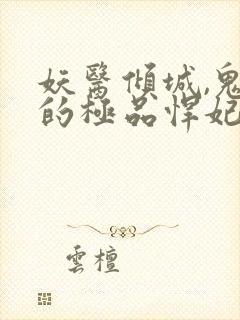 妖醫傾城,鬼
的極品悍妃
雲檀